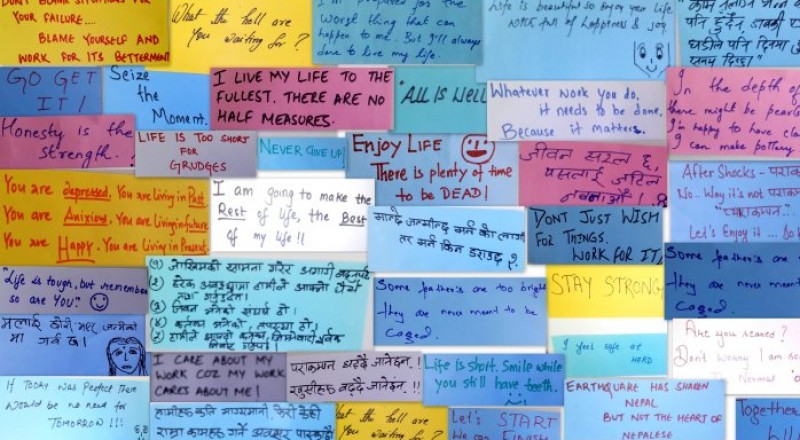 DON'T BLAME SITUATIONS FOR
YOUR FAILURE...
BLAME YOURSELF AND
WORK FOR ITS BETTERMENT
What the hell are
You waiting for?
I'm prepared for the
worst thing that can
happen to me. But I'll always
love to live my life.
Life is beautiful so enjoy your life
full of happiness & joy.
पनि हुदैन
घडीले पनि दिनमा
समय दिन्छ
GO GET
IT!
Seize
the
Moment.
I LIVE MY LIFE TO THE
FULLEST. THERE ARE NO
HALF MEASURES.
"ALL IS WELL
Whatever work you do,
it needs to be done,
Because it matters.
In the depth of
there might be pearls
I'm happy to have clay
I can make pottery
Honesty is the
strength.
LIFE IS TOO SHORT
FOR
GRUDGES
NEVER GIVE UP!
ENJOY LIFE
There is plenty of time
to be DEAD!
जीवन सरल छ,
यसलाई जटिल
नबनाऔं।
After Shocks - पराक
No.. Why it's not
"पराकम्पन..."
Let's Enjoy it...
You are depressed, You are Living in Past
You are Anxious, You are Living in future
You are Happy, You are Living in Present.
I am going to make the
Rest of life, the Best
of my life!!
मान्छे जन्मीन्छ मर्न को लागी
तर मर्न किन डराउछ?
DONT JUST WISH
FOR THINGS.
WORK FOR IT,
"Life is tough, but remember
so are YOU."
① जोखिमको सामना गरेर अगाडी
② हरेक अवस्थामा हामीले आफ्नो धैर्य
③ जीवन भनेको संघर्ष हो।
④ कर्तव्य भनेको तपस्या हो।
Some feather's are too bright
they are never meant to be
caged.
STAY STRONG,
Some feather's are too
they are never meant to be
caged.
मलाई
मा गर्व छ।
I CARE ABOUT MY
WORK COZ MY WORK
CARES ABOUT ME!
पराकम्पन घट्दै जानेछन्.!
खुसीहरु बढ्दै जानेछन्.!!
Life is short. Smile while
you still have teeth.
I feel safe at
HERD
Are you scared?
Don't worry I am
Normal
If TODAY was Perfect There
Would be no need for
TOMORROW !!!
हामीहरु कति भाग्यमानी
राम्रा कामहरु गर्ने अवसर
What the hell are
You waiting for?
Let's START
We can
EARTHQUAKE HAS SHAKEN
NEPAL
BUT NOT THE HEART OF
NEPALESE
Together